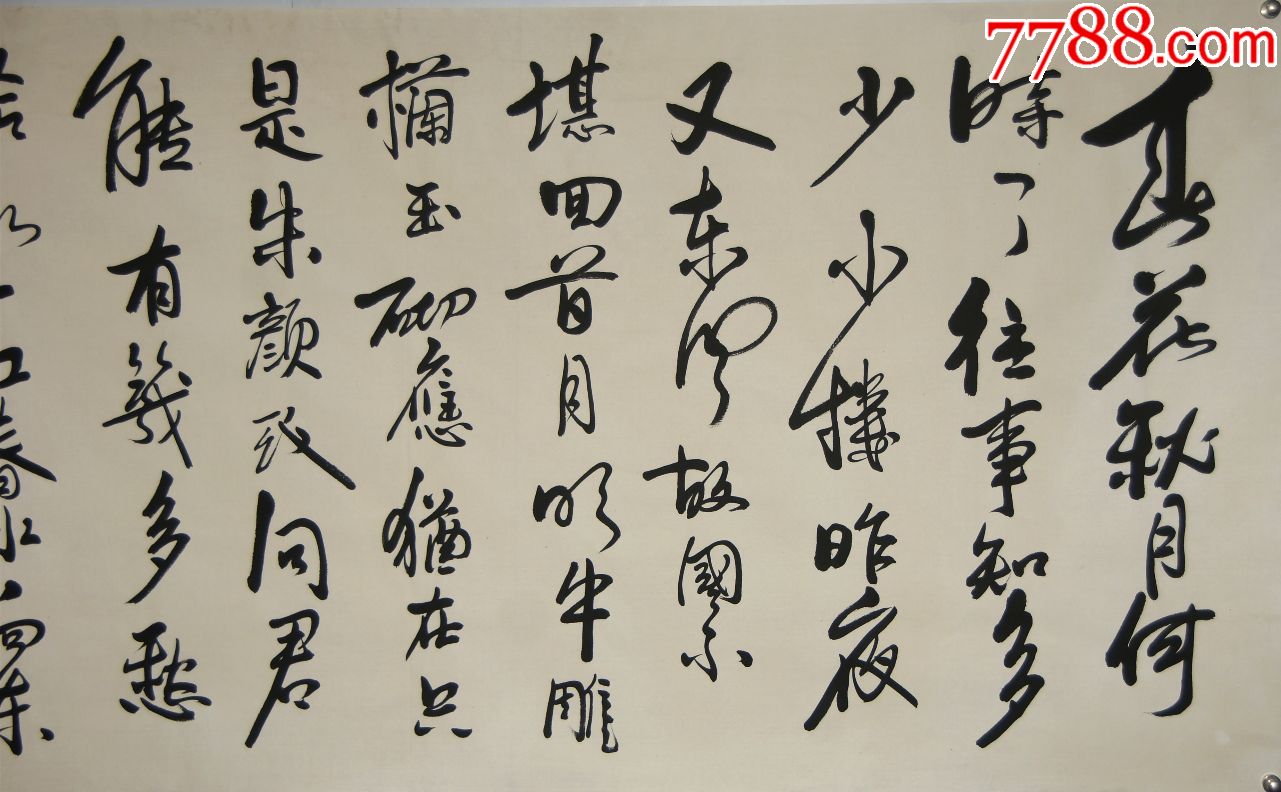 7788.com
春花秋月何
時了往事知多
少小樓昨夜
又東風故國不
堪回首月明中雕
欄玉砌應猶在只
是朱顔改问君
能有幾多愁
恰似一江春水向東